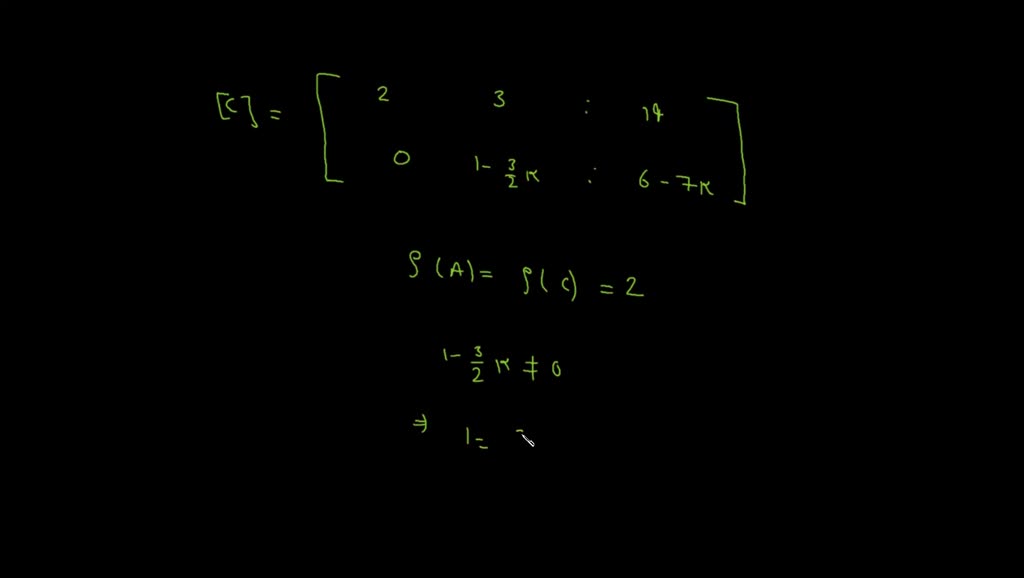 [C] = [ 2 3 : 14
0 1 - 3/2 K : 6 - 7K ]
ρ(A) = ρ(C) = 2
1 - 3/2 K ≠ 0
⇒ 1 =